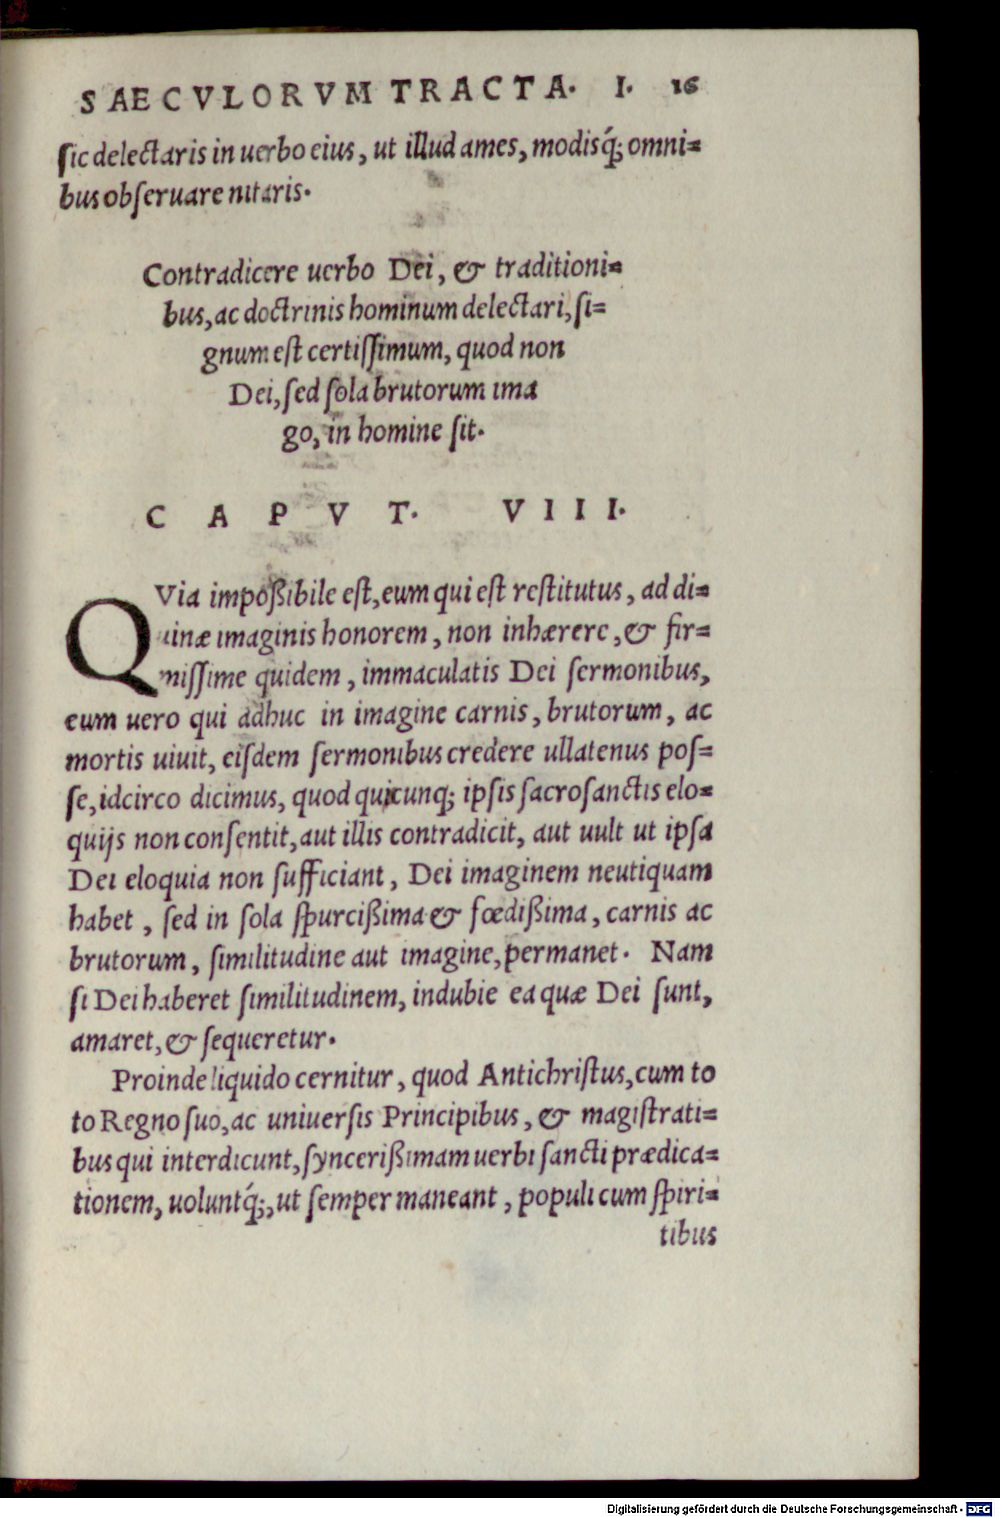 SAECVLORVM TRACTA. I. 16
ſic delectaris in uerbo eius, ut illud ames, modisq́; omni=
bus obſeruare nitaris.
Contradicere uerbo Dei, & traditioni=
bus, ac doctrinis hominum delectari, ſi=
gnum eſt certiſſimum, quod non
Dei, ſed ſola brutorum ima
go, in homine ſit.
CAPVT. VIII.
QVia impoßibile eſt, eum qui eſt reſtitutus, ad di=
uinæ imaginis honorem, non inhærere, & fir=
miſſime quidem, immaculatis Dei ſermonibus,
eum uero qui adhuc in imagine carnis, brutorum, ac
mortis uiuit, eiſdem ſermonibus credere ullatenus poſ=
ſe, idcirco dicimus, quod quicunq; ipſis ſacroſanctis elo=
quijs non conſentit, aut illis contradicit, aut uult ut ipſa
Dei eloquia non ſufficiant, Dei imaginem neutiquam
habet, ſed in ſola ſpurcißima & fœdißima, carnis ac
brutorum, ſimilitudine aut imagine, permanet. Nam
ſi Dei haberet ſimilitudinem, indubie ea quæ Dei ſunt,
amaret, & ſequeretur.
Proinde liquido cernitur, quod Antichriſtus, cum to
to Regno ſuo, ac uniuerſis Principibus, & magiſtrati=
bus qui interdicunt, ſyncerißimam uerbi ſancti prædica=
tionem, uoluntq́;, ut ſemper maneant, populi cum ſpiri=
tibus
Digitalisierung gefördert durch die Deutsche Forschungsgemeinschaft - DFG